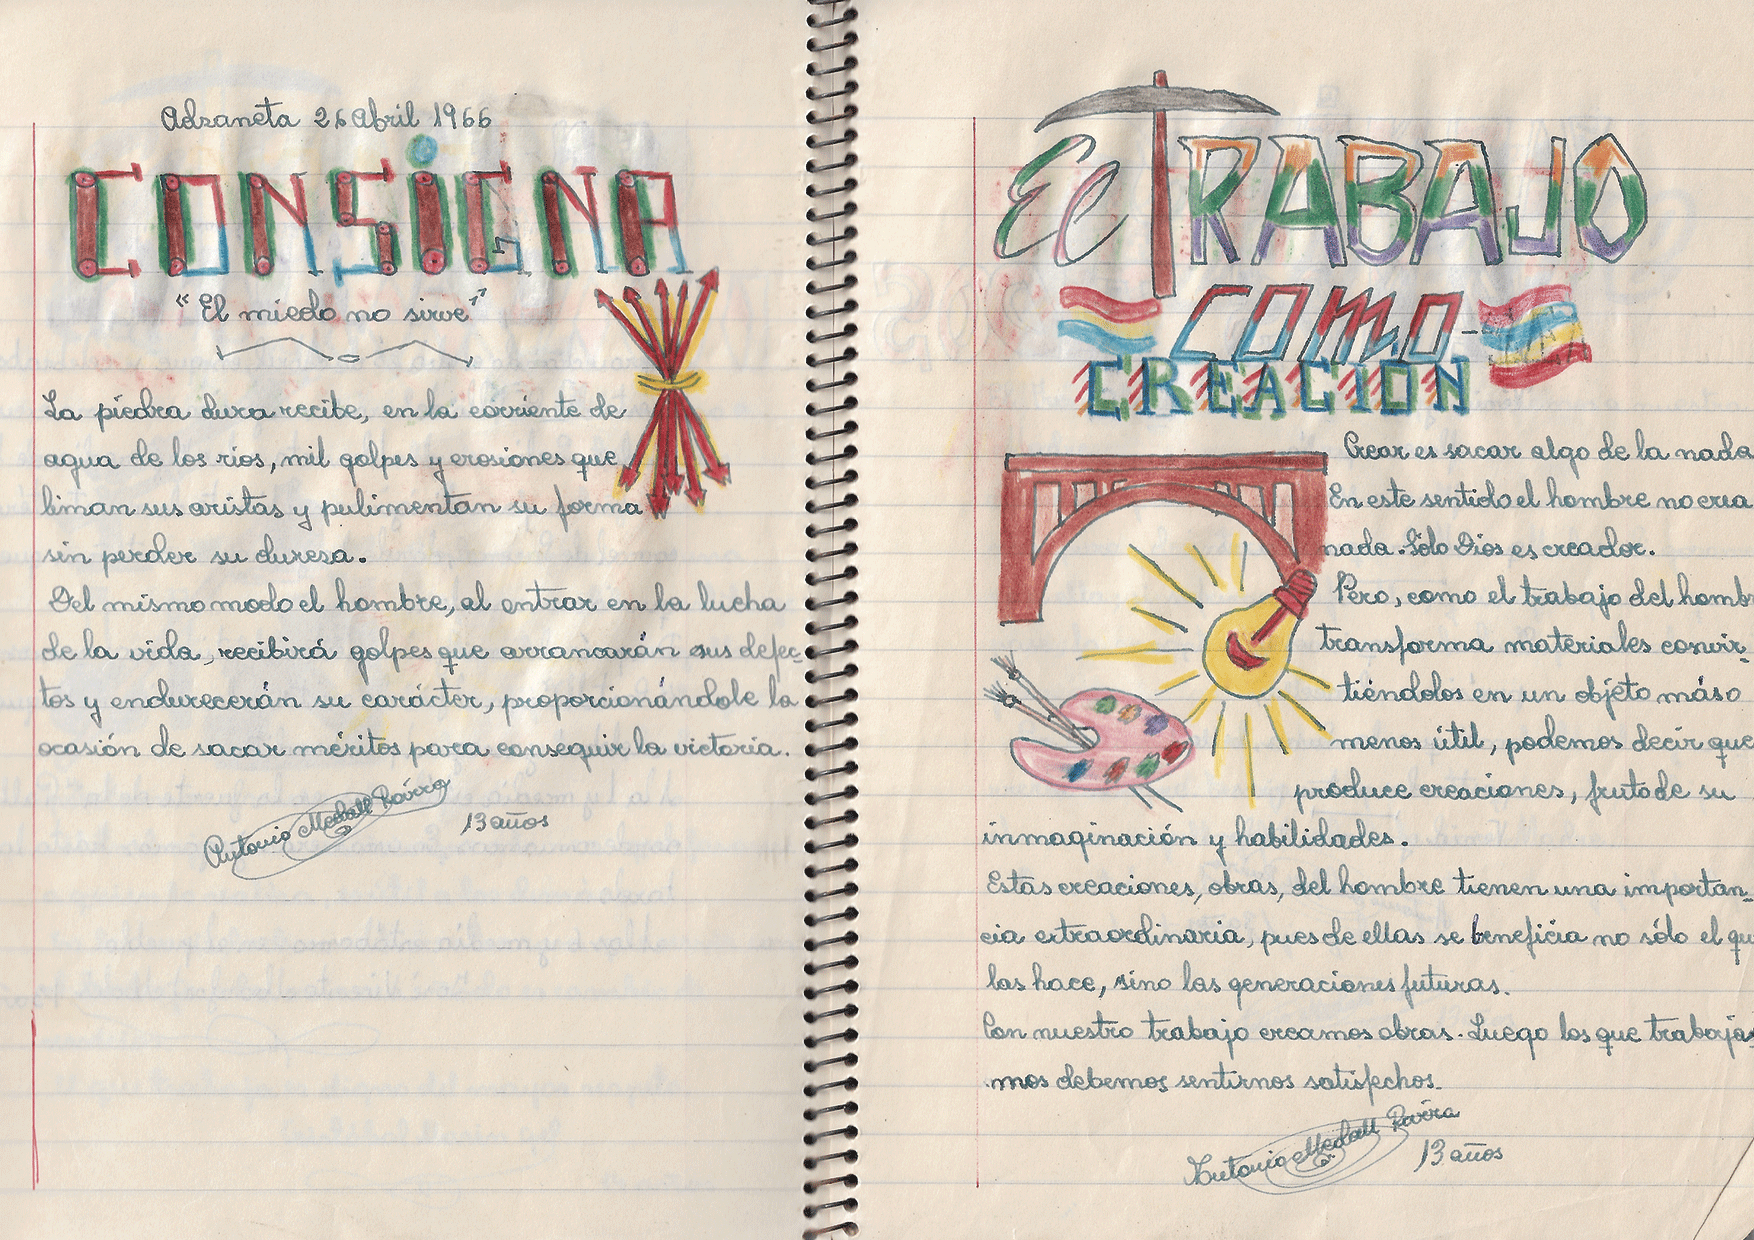 Adsaneta 26 Abril 1966
CONSIGNA
"El miedo no sirve"
La piedra dura recibe, en la corriente de
agua de los ríos, mil golpes y erosiones que
liman sus aristas y pulimentan su forma
sin perder su duresa.
Del mismo modo el hombre, al entrar en la lucha
de la vida, recibirá golpes que arrancarán sus defec-
tos y endurecerán su carácter, proporcionándole la
ocasión de sacar méritos para conseguir la victoria.
Antonio Medall Rivera
13 años
El TRABAJO
COMO-
CREACIÓN
Crear es sacar algo de la nada
En este sentido el hombre no crea
nada. Sólo Dios es creador.
Pero, como el trabajo del hombr
transforma materiales convir-
tiéndolos en un objeto máso
menos útil, podemos decir que
produce creaciones, fruto de su
inmaginación y habilidades.
Estas creaciones, obras, del hombre tienen una importan-
cia extraordinaria, pues de ellas se beneficia no sólo el qu
las hace, sino las generaciones futuras.
Con nuestro trabajo creamos obras. Luego los que trabaja-
mos debemos sentirnos satisfechos.
Antonio Medall Rivera
13 años